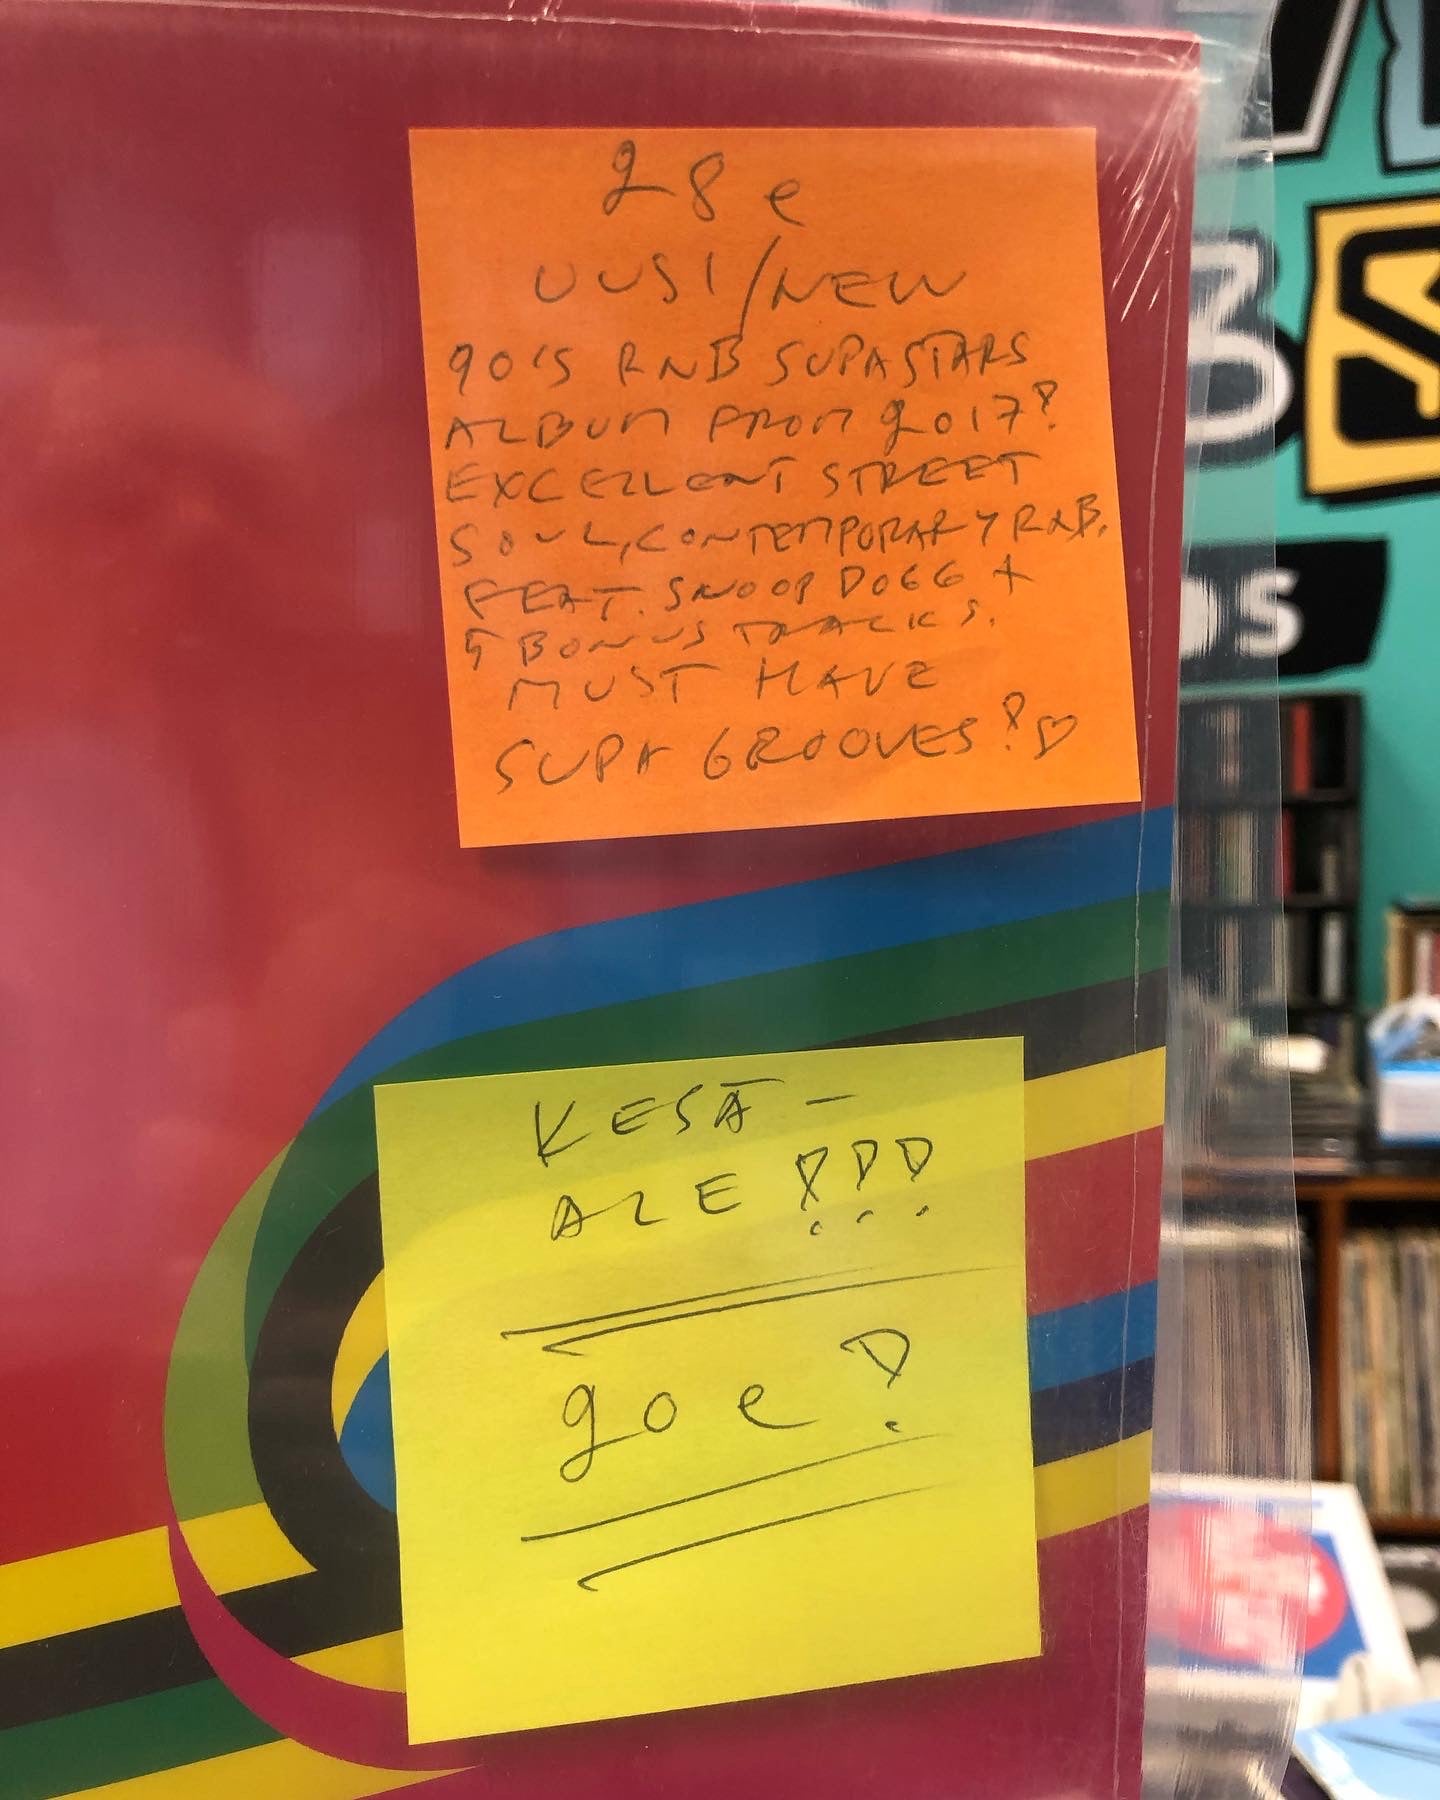 28 e
UUSI/NEW
90'S RNB SUPASTARS
ALBUM FROM 2017!
EXCELLENT STREET
SOUL, CONTEMPORARY RNB.
FEAT. SNOOP DOGG +
5 BONUS TRACKS.
MUST HAVE
SUPA GROOVES! ♡
KESÄ-
ALE!!!
20 e!